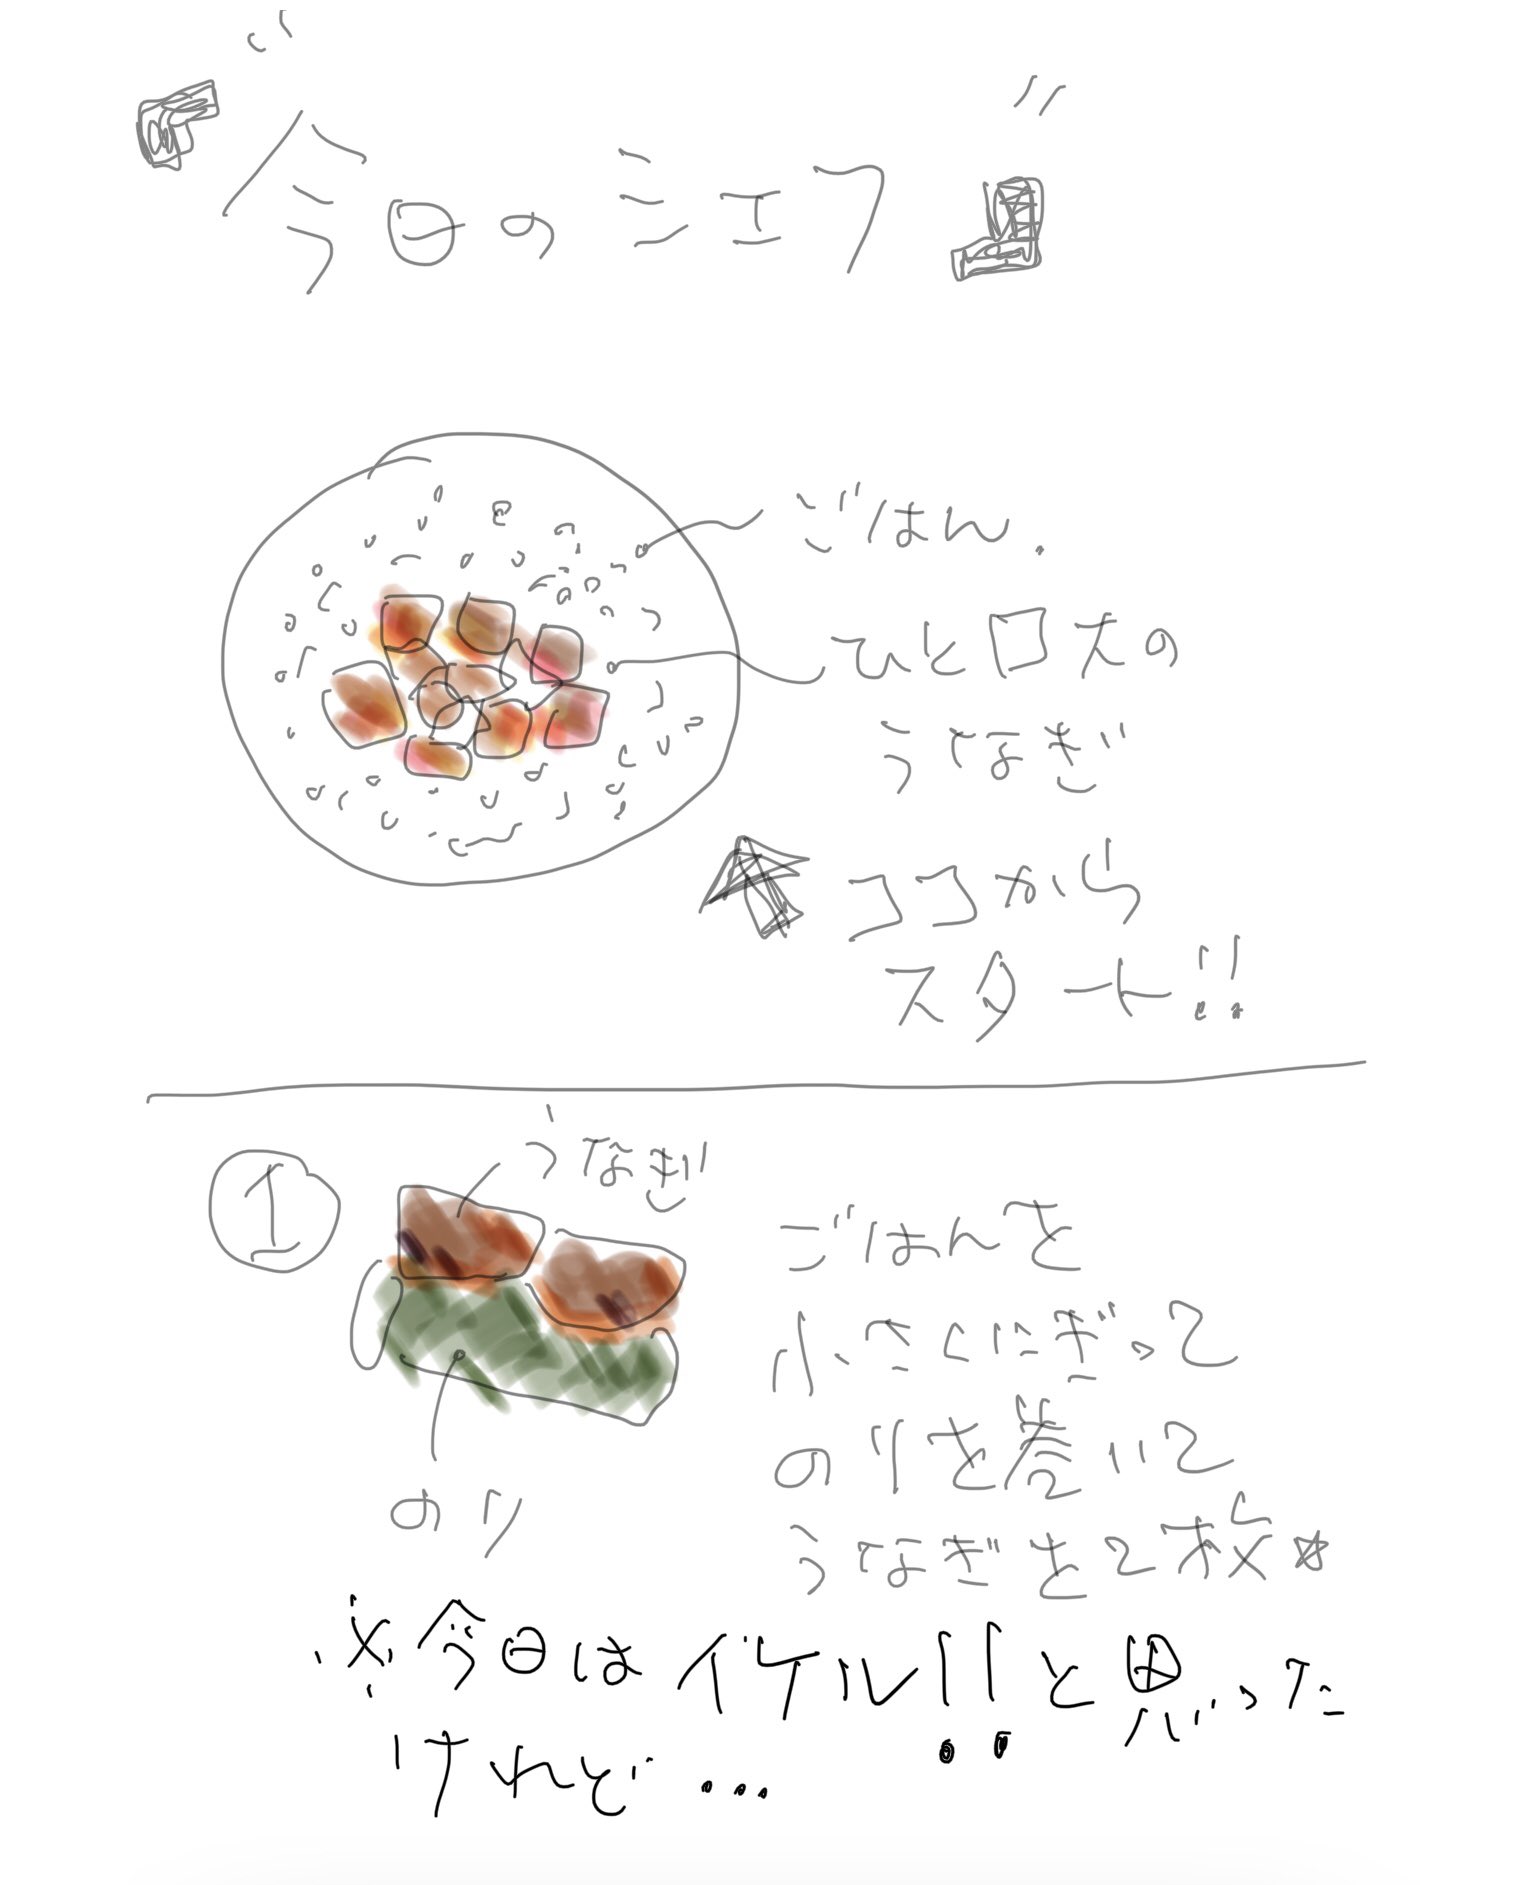 『今日のシェフ』
ごはん.
ひと口大の
うなぎ
ココから
スタート!!
1
うなぎ
のり
ごはんを
小さくにぎって
のりを巻いて
うなぎを2枚☆
※今日はイケル!!と思った
けれど…